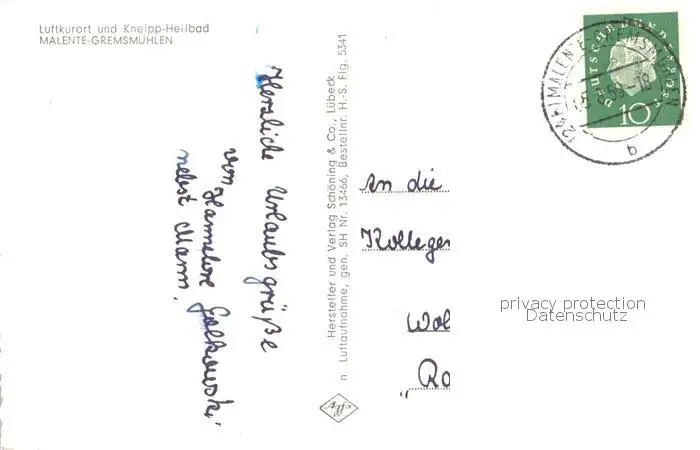 Luftkurort und Kneipp-Heilbad
MALENTE-GREMSMÜHLEN
Herzliche Urlaubsgrüße
von Hannelore
nebst Mann.
Hersteller und Verlag Schöning & Co., Lübeck
Luftaufnahme, gen. SH Nr. 13466, Bestellnr. H.-S. Flg. 5341
n
Agfa
DEUTSCHE BUNDESPOST
10
MALENTE-GREMSMÜHLEN
b
An die
Kollegen
Wol
„Ro
privacy protection
Datenschutz